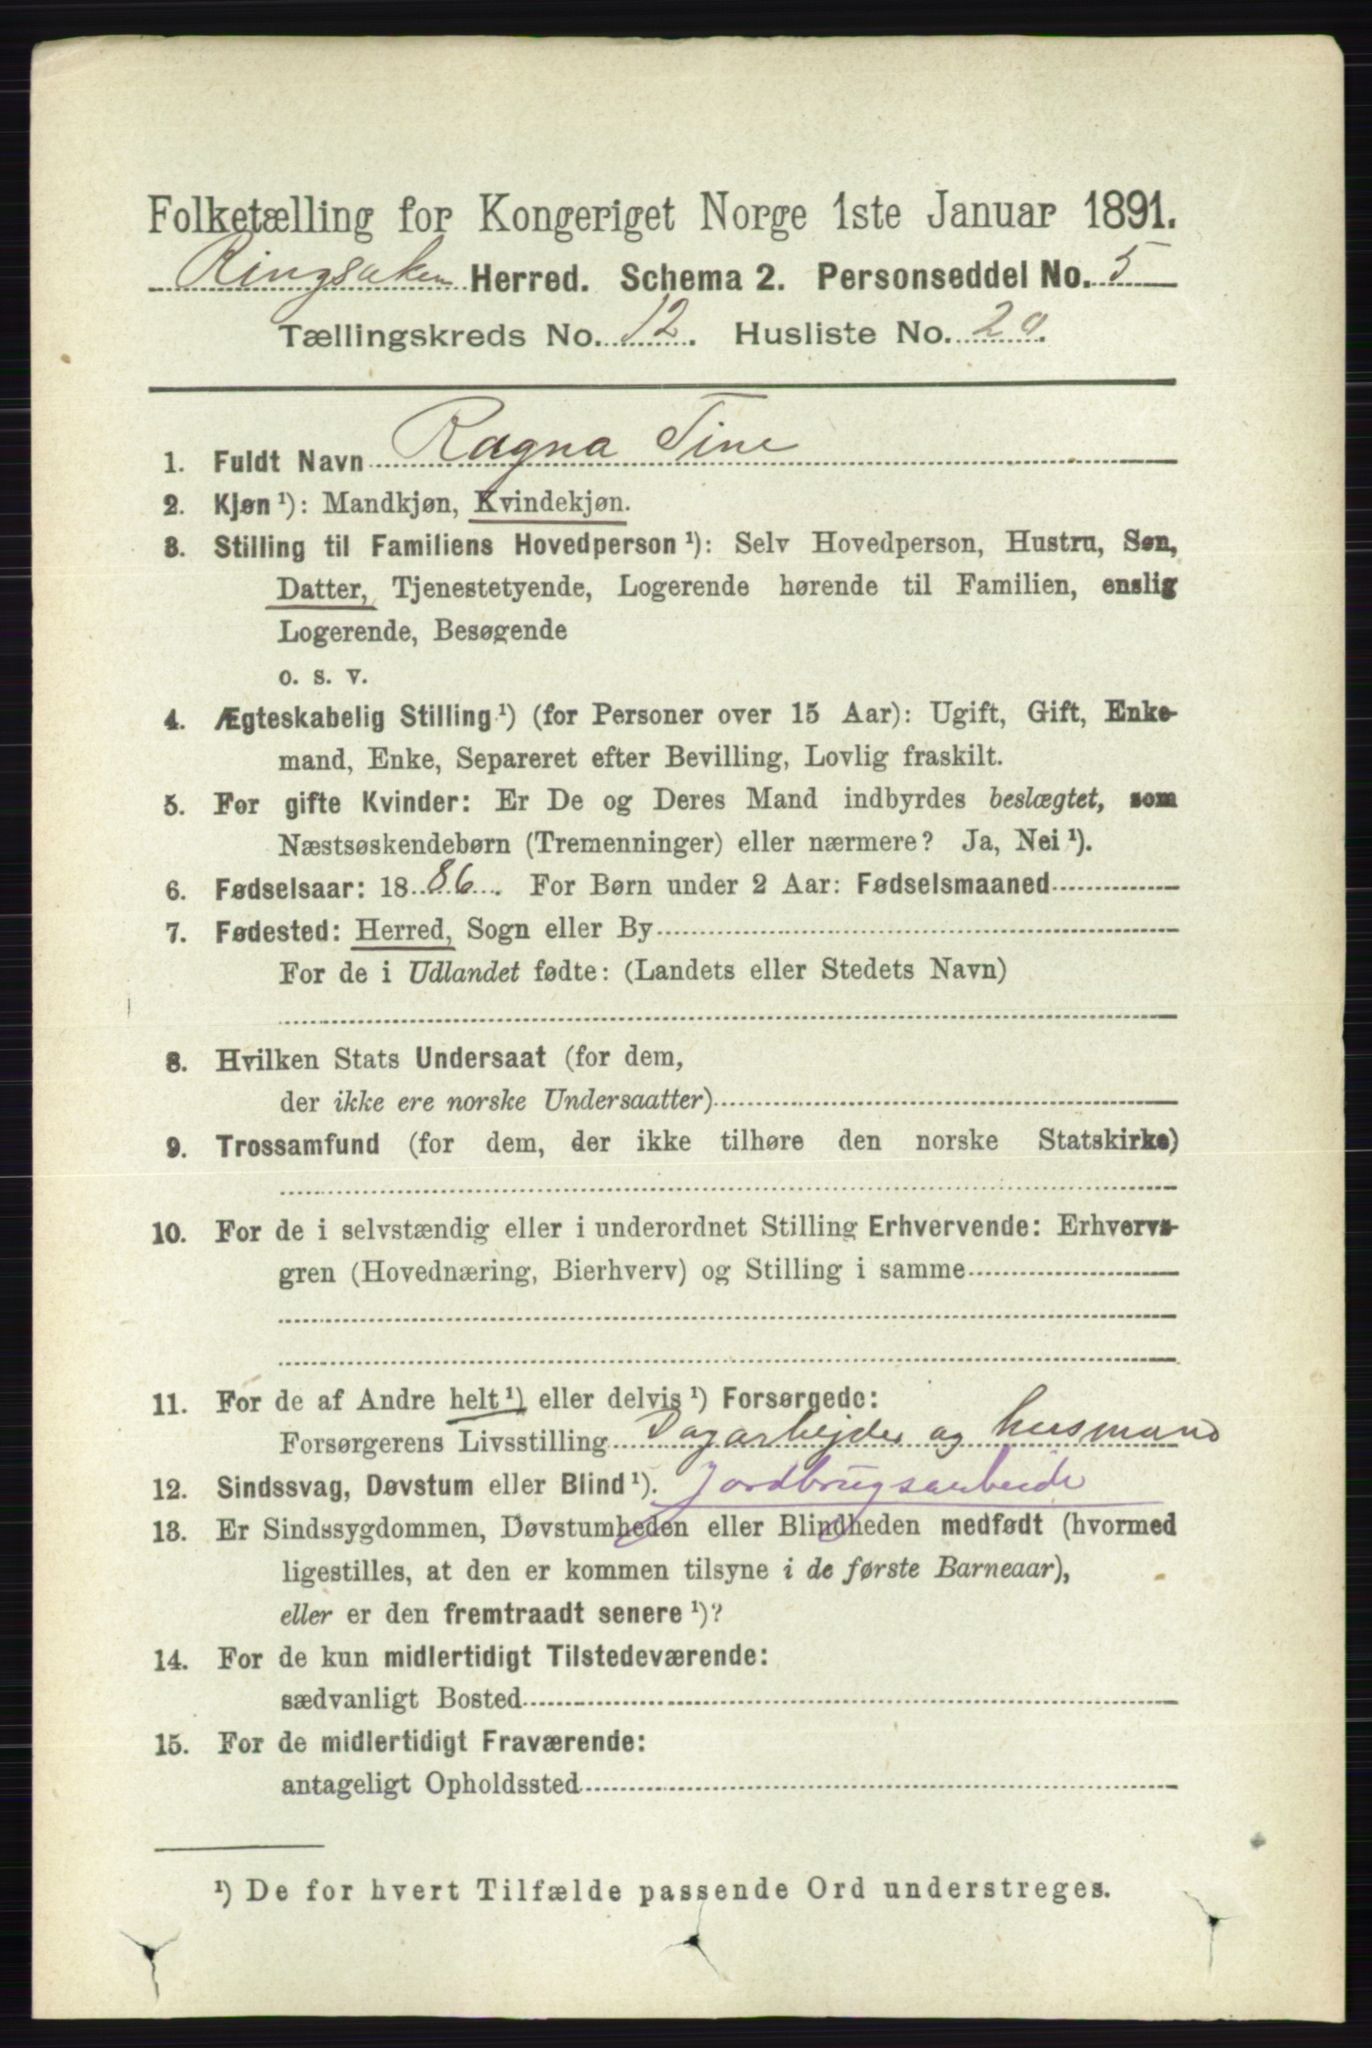 Folketælling for Kongeriget Norge 1ste Januar 1891.
Ringsaker Herred. Schema 2. Personseddel No. 5
Tællingskreds No. 12. Husliste No. 20.
1. Fuldt Navn Ragna Tine
2. Kjøn ¹): Mandkjøn, Kvindekjøn.
3. Stilling til Familiens Hovedperson ¹): Selv Hovedperson, Hustru, Søn,
Datter, Tjenestetyende, Logerende hørende til Familien, enslig
Logerende, Besøgende
o. s. v.
4. Ægteskabelig Stilling ¹) (for Personer over 15 Aar): Ugift, Gift, Enke-
mand, Enke, Separeret efter Bevilling, Lovlig fraskilt.
5. For gifte Kvinder: Er De og Deres Mand indbyrdes beslægtet, som
Næstsøskendebørn (Tremenninger) eller nærmere? Ja, Nei ¹).
6. Fødselsaar: 1886. For Børn under 2 Aar: Fødselsmaaned
7. Fødested: Herred, Sogn eller By
For de i Udlandet fødte: (Landets eller Stedets Navn)
8. Hvilken Stats Undersaat (for dem,
der ikke ere norske Undersaatter)
9. Trossamfund (for dem, der ikke tilhøre den norske Statskirke)
10. For de i selvstændig eller i underordnet Stilling Erhvervende: Erhvervs-
gren (Hovednæring, Bierhverv) og Stilling i samme
11. For de af Andre helt ¹) eller delvis ¹) Forsørgede:
Forsørgerens Livsstilling Dagarbejder og husmand
12. Sindssvag, Døvstum eller Blind ¹). Jordbrugsarbeide
13. Er Sindssygdommen, Døvstumheden eller Blindheden medfødt (hvormed
ligestilles, at den er kommen tilsyne i de første Barneaar),
eller er den fremtraadt senere ¹)?
14. For de kun midlertidigt Tilstedeværende:
sædvanligt Bosted
15. For de midlertidigt Fraværende:
antageligt Opholdssted
¹) De for hvert Tilfælde passende Ord understreges.